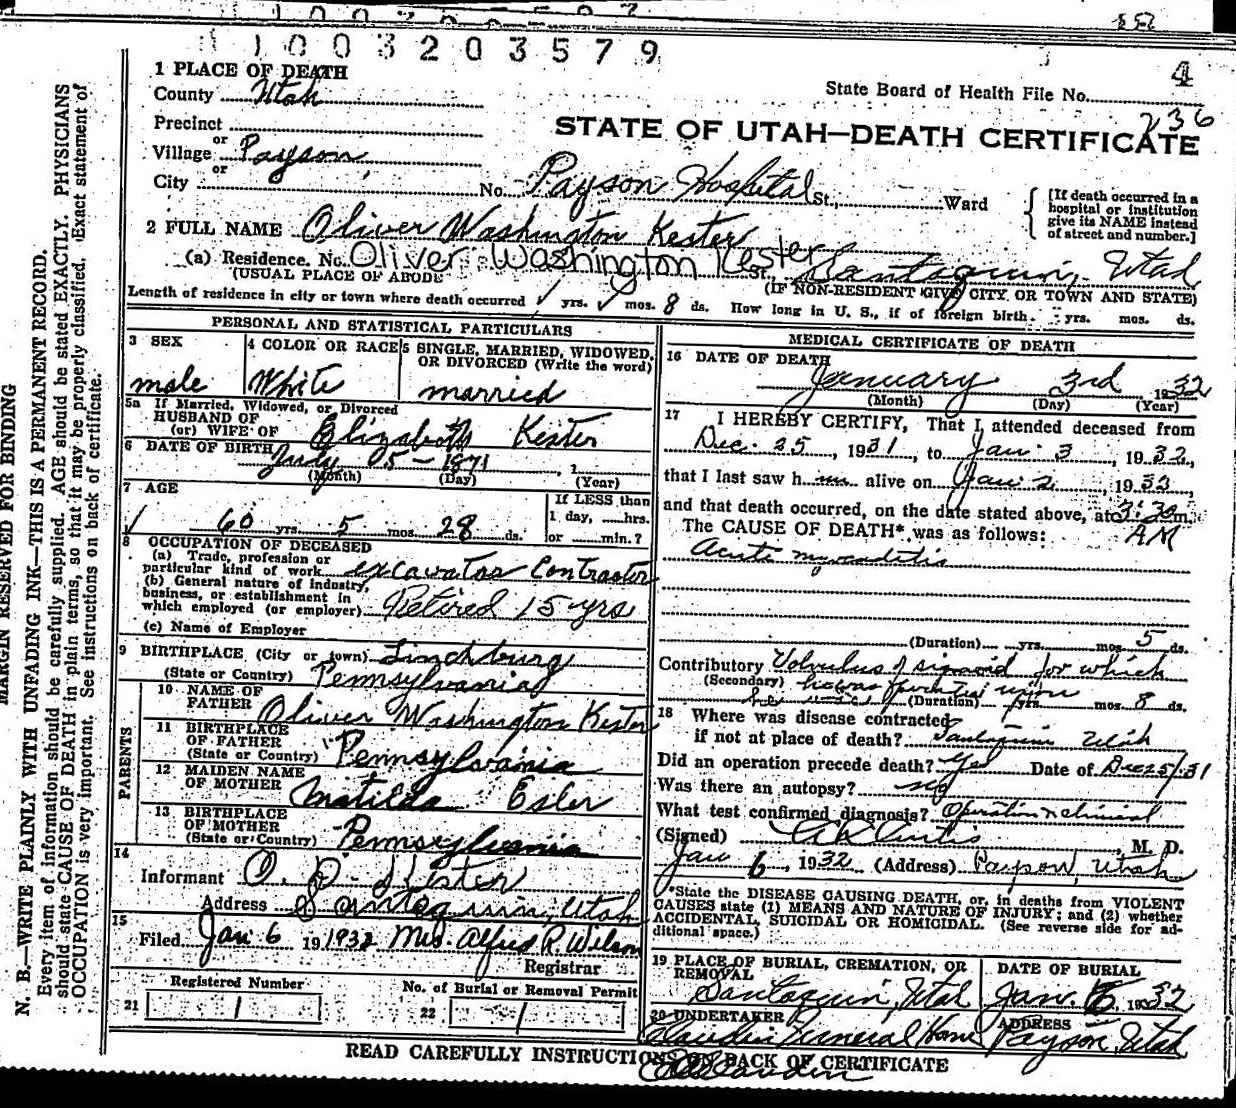 1003203579
4
1 PLACE OF DEATH
County Utah
State Board of Health File No.
236
Precinct
or
Village Payson
or
City
STATE OF UTAH—DEATH CERTIFICATE
No. Payson Hospital St., Ward
[If death occurred in a
hospital or institution
give its NAME instead
of street and number.]
2 FULL NAME Oliver Washington Kester
(a) Residence. No. Oliver Washington Kester St., Santaquin, Utah
(USUAL PLACE OF ABODE
(IF NON-RESIDENT GIVE CITY OR TOWN AND STATE)
Length of residence in city or town where death occurred yrs. mos. 8 ds. How long in U. S., if of foreign birth. yrs. mos. ds.
PERSONAL AND STATISTICAL PARTICULARS
3 SEX
male
4 COLOR OR RACE
White
5 SINGLE, MARRIED, WIDOWED,
OR DIVORCED (Write the word)
married
5a If Married, Widowed, or Divorced
HUSBAND OF
(or) WIFE OF Elizabeth Kester
6 DATE OF BIRTH July 05-1871, 1
(Month) (Day) (Year)
7 AGE
60 yrs. 5 mos. 28 ds.
If LESS than
1 day, hrs.
or min.?
8 OCCUPATION OF DECEASED
(a) Trade, profession or
particular kind of work excavator Contractor
(b) General nature of industry,
business, or establishment in
which employed (or employer) Retired 15 yrs
(c) Name of Employer
9 BIRTHPLACE (City or town) Linchburg
(State or Country) Pennsylvania
PARENTS
10 NAME OF
FATHER Oliver Washington Kester
11 BIRTHPLACE
OF FATHER
(State or Country) Pennsylvania
12 MAIDEN NAME
OF MOTHER Matilda Esler
13 BIRTHPLACE
OF MOTHER
(State or Country) Pennsylvania
14
Informant O. D. Kester
Address Santaquin, Utah
15
Filed Jan 6 19 1932 Mrs. Alfred R. Wilson
Registrar
Registered Number
21 1
No. of Burial or Removal Permit
22 1
MEDICAL CERTIFICATE OF DEATH
16 DATE OF DEATH
January 3rd 1932
(Month) (Day) (Year)
17 I HEREBY CERTIFY, That I attended deceased from
Dec. 25, 1931, to Jan 3, 1932,
that I last saw him alive on Jan 2, 1932,
and that death occurred, on the date stated above, at 3:30 m.
AM
The CAUSE OF DEATH* was as follows:
Acute myocarditis
(Duration) yrs. mos. 5 ds.
Contributory Volvulus of sigmoid for which
(Secondary) he was operated upon
(Duration) yrs. mos. 8 ds.
18 Where was disease contracted
if not at place of death? Santaquin Utah
Did an operation precede death? Yes Date of Dec 25/31
Was there an autopsy? no
What test confirmed diagnosis? Operation & clinical
(Signed) Curtis, M. D.
Jan 6, 1932 (Address) Payson, Utah
*State the DISEASE CAUSING DEATH, or, in deaths from VIOLENT
CAUSES state (1) MEANS AND NATURE OF INJURY; and (2) whether
ACCIDENTAL, SUICIDAL OR HOMICIDAL. (See reverse side for ad-
ditional space.)
19 PLACE OF BURIAL, CREMATION, OR
REMOVAL
Santaquin, Utah
DATE OF BURIAL
Jan. 6, 1932
20 UNDERTAKER
Claudin Funeral Home
ADDRESS
Payson, Utah
READ CAREFULLY INSTRUCTIONS ON BACK OF CERTIFICATE
MARGIN RESERVED FOR BINDING
N. B.—WRITE PLAINLY WITH UNFADING INK—THIS IS A PERMANENT RECORD.
Every item of information should be carefully supplied. AGE should be stated EXACTLY. PHYSICIANS
should state CAUSE OF DEATH in plain terms, so that it may be properly classified. Exact statement of
OCCUPATION is very important. See instructions on back of certificate.